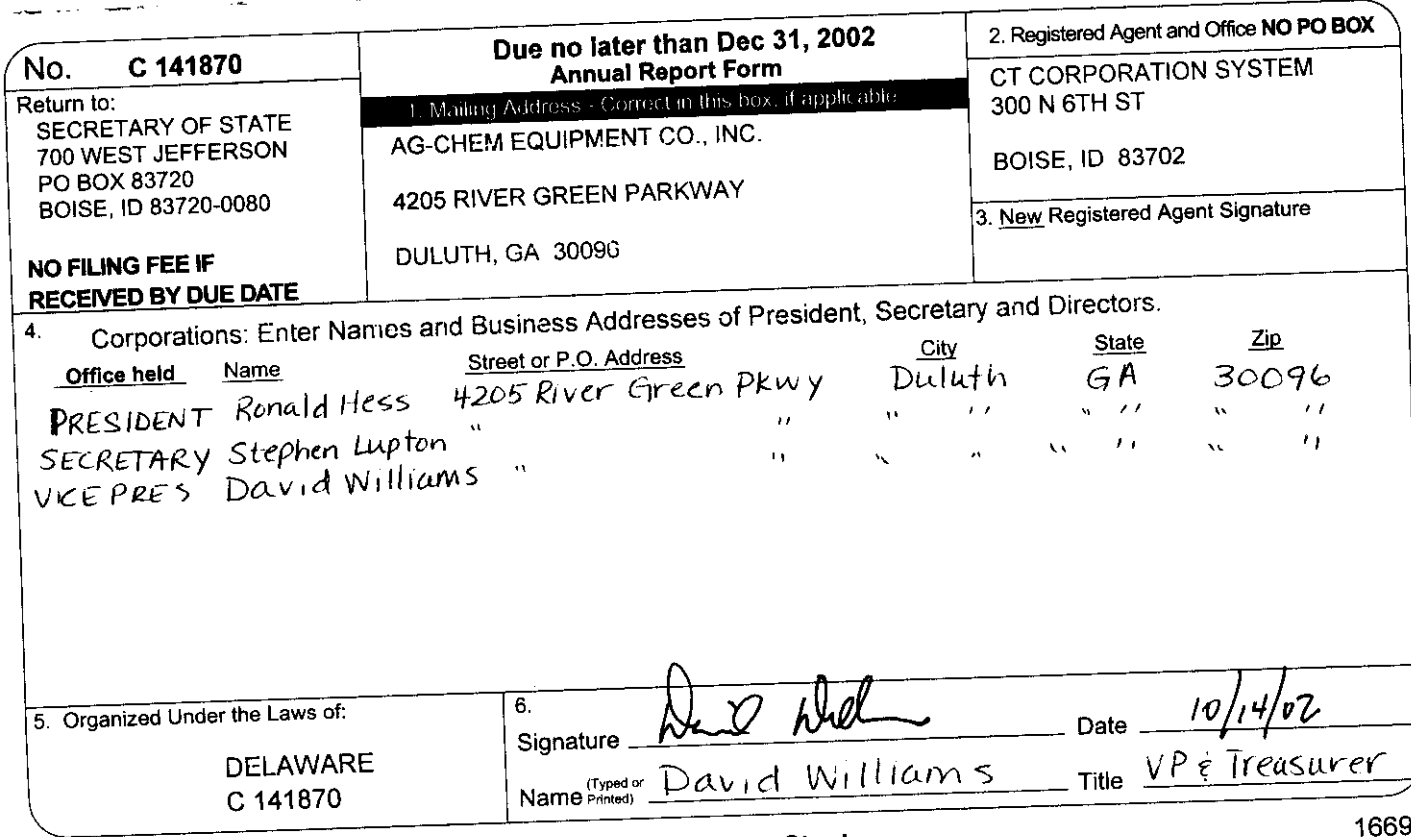 No. C 141870
Return to:
SECRETARY OF STATE
700 WEST JEFFERSON
PO BOX 83720
BOISE, ID 83720-0080
NO FILING FEE IF
RECEIVED BY DUE DATE
Due no later than Dec 31, 2002
Annual Report Form
1. Mailing Address - Correct in this box, if applicable
AG-CHEM EQUIPMENT CO., INC.
4205 RIVER GREEN PARKWAY
DULUTH, GA 30096
2. Registered Agent and Office NO PO BOX
CT CORPORATION SYSTEM
300 N 6TH ST
BOISE, ID 83702
3. New Registered Agent Signature
4. Corporations: Enter Names and Business Addresses of President, Secretary and Directors.
Office held Name Street or P.O. Address City State Zip
PRESIDENT Ronald Hess 4205 River Green Pkwy Duluth GA 30096
SECRETARY Stephen Lupton " " " " " " " "
VICE PRES David Williams " " " " " " " "
5. Organized Under the Laws of:
DELAWARE
C 141870
6.
Signature David Date 10/14/02
Name (Typed or Printed) David Williams Title VP & Treasurer
1669